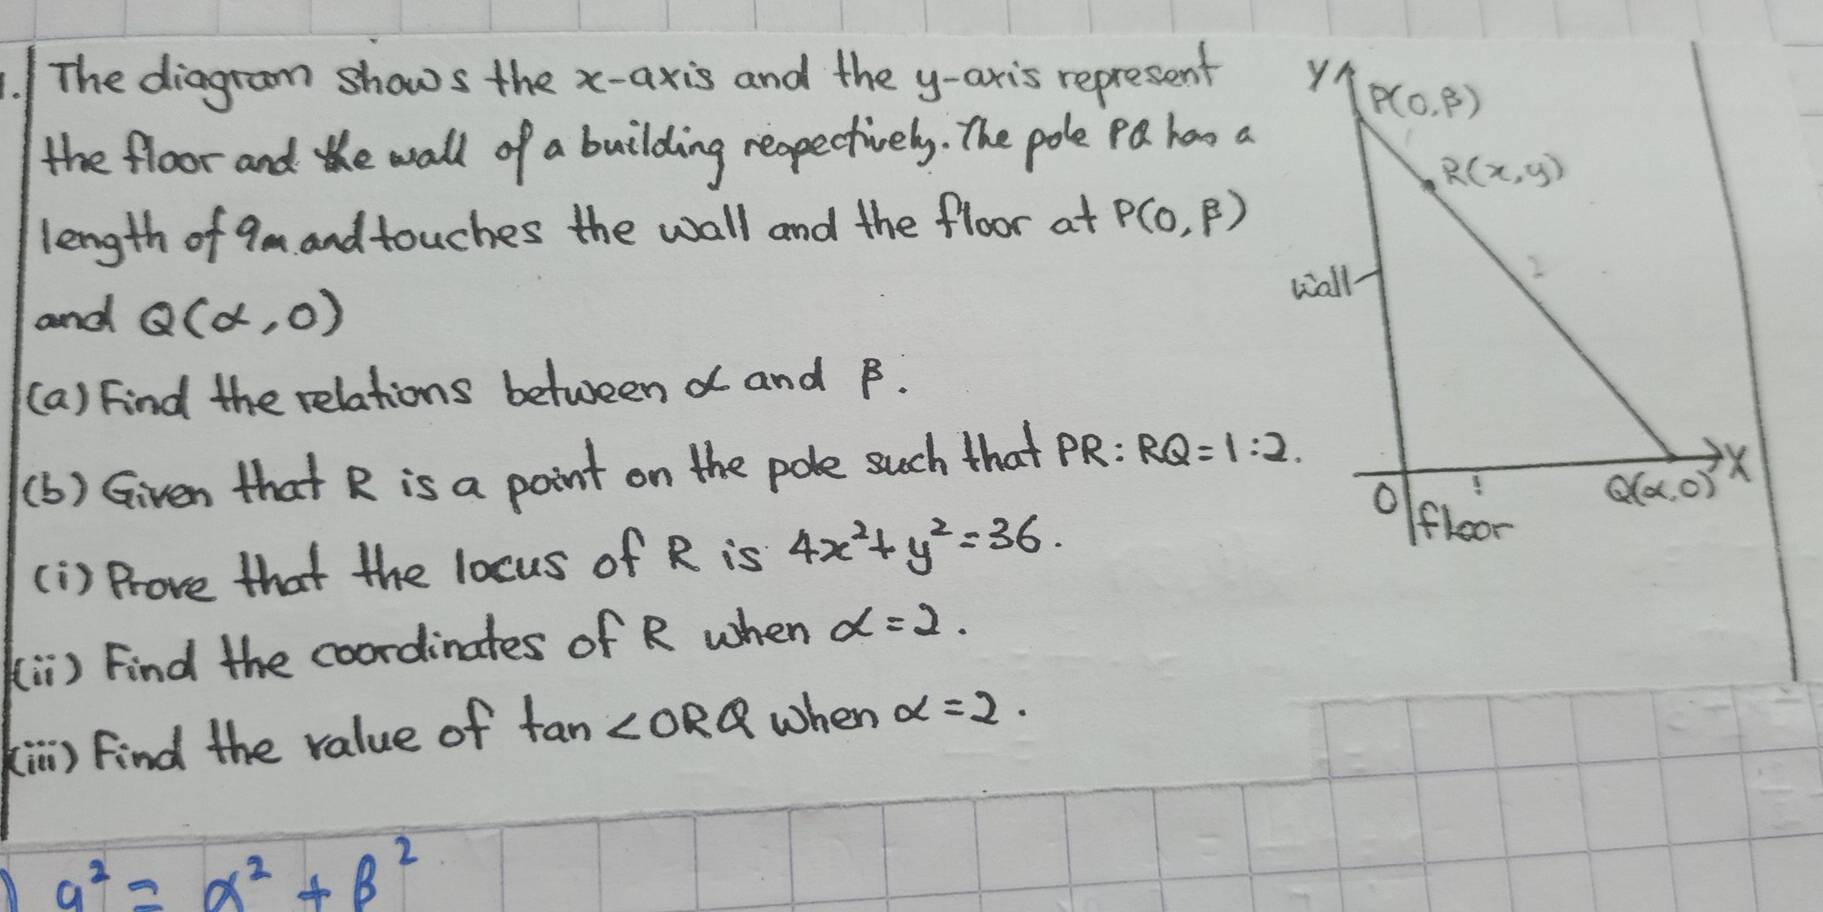 1. The diagram shows the x-axis and the y-axis represent
the floor and the wall of a building respectively. The pole PQ has a
length of 9m and touches the wall and the floor at P(0, β)
and Q(α, 0)
(a) Find the relations between α and β.
(b) Given that R is a point on the pole such that PR : RQ = 1 : 2.
(i) Prove that the locus of R is 4x² + y² = 36.
(ii) Find the coordinates of R when α = 2.
(iii) Find the value of tan <ORQ when α = 2.
Y
P(0, β)
R(x, y)
2
wall
X
O
Q(α, 0)
floor
) 9² = α² + β²